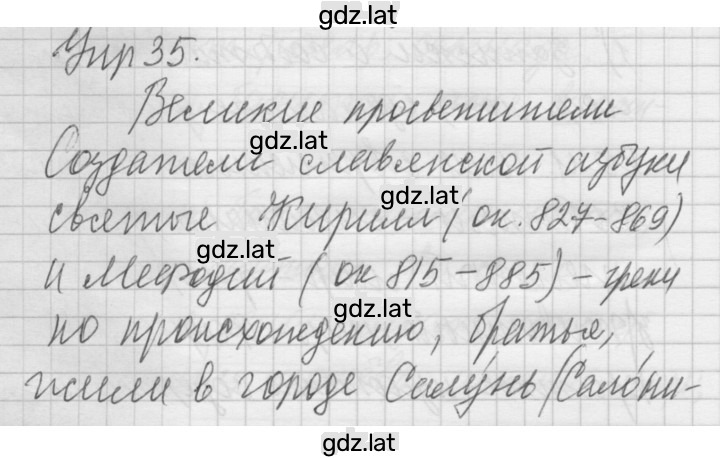 gdz.lat
Упр 35.
Великие просветители
gdz.lat
Создатели славянской азбуки
gdz.lat
святые Кирилл (ок. 827-869)
gdz.lat
и Мефодий (ок 815-885) - греки
gdz.lat
по происхождению, братья,
жили в городе Салу́нь (Сало́ни-
gdz.lat